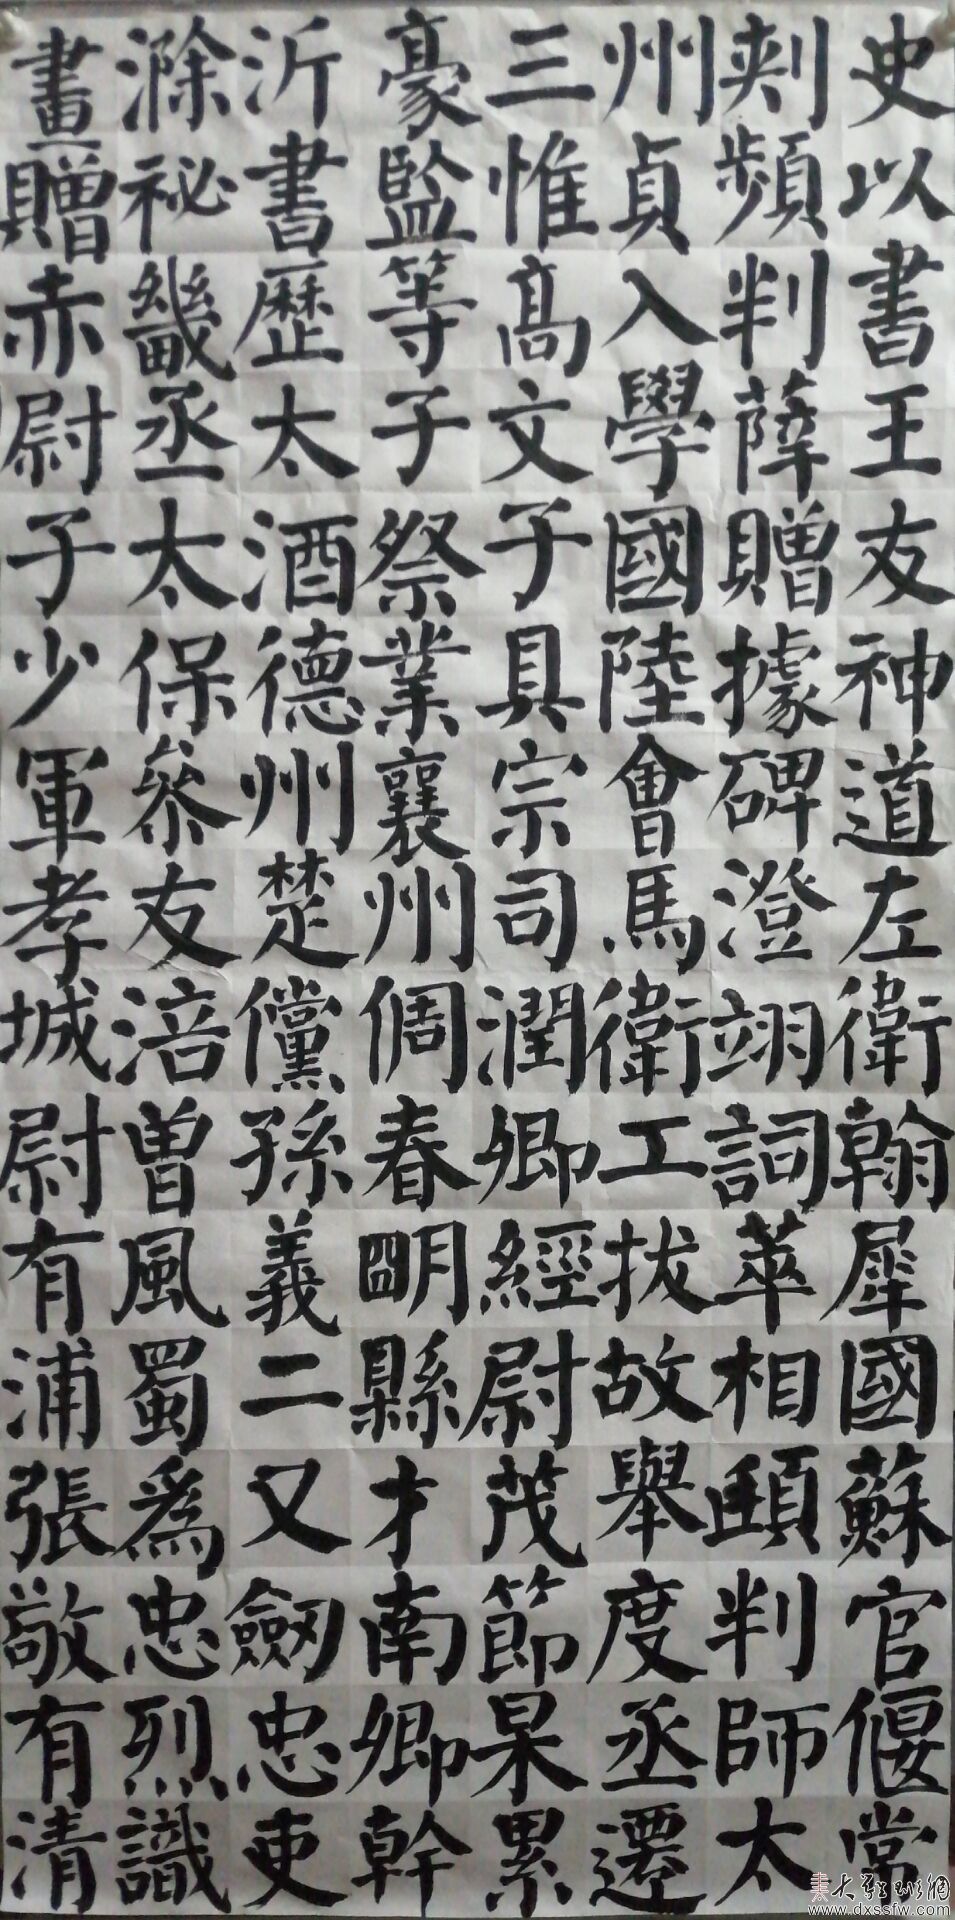 史以書王友神道左衛翰犀國蘇官偃常
刾頻判薛贈據碑澄翊詞萃相頤判師太
州貞入學國陸會馬衛工拔故舉度丞遷
三惟高文子具宗司潤卿經尉茂節杲累
豪監等子祭業襄州倜春朙縣才南卿幹
沂書歷太酒德州楚儻孫義二又劒忠吏
滁祕畿丞太保參友涪曽風蜀爲忠烈識
畫贈赤尉子少軍孝城尉有浦張敬有清
www.dxssfw.com